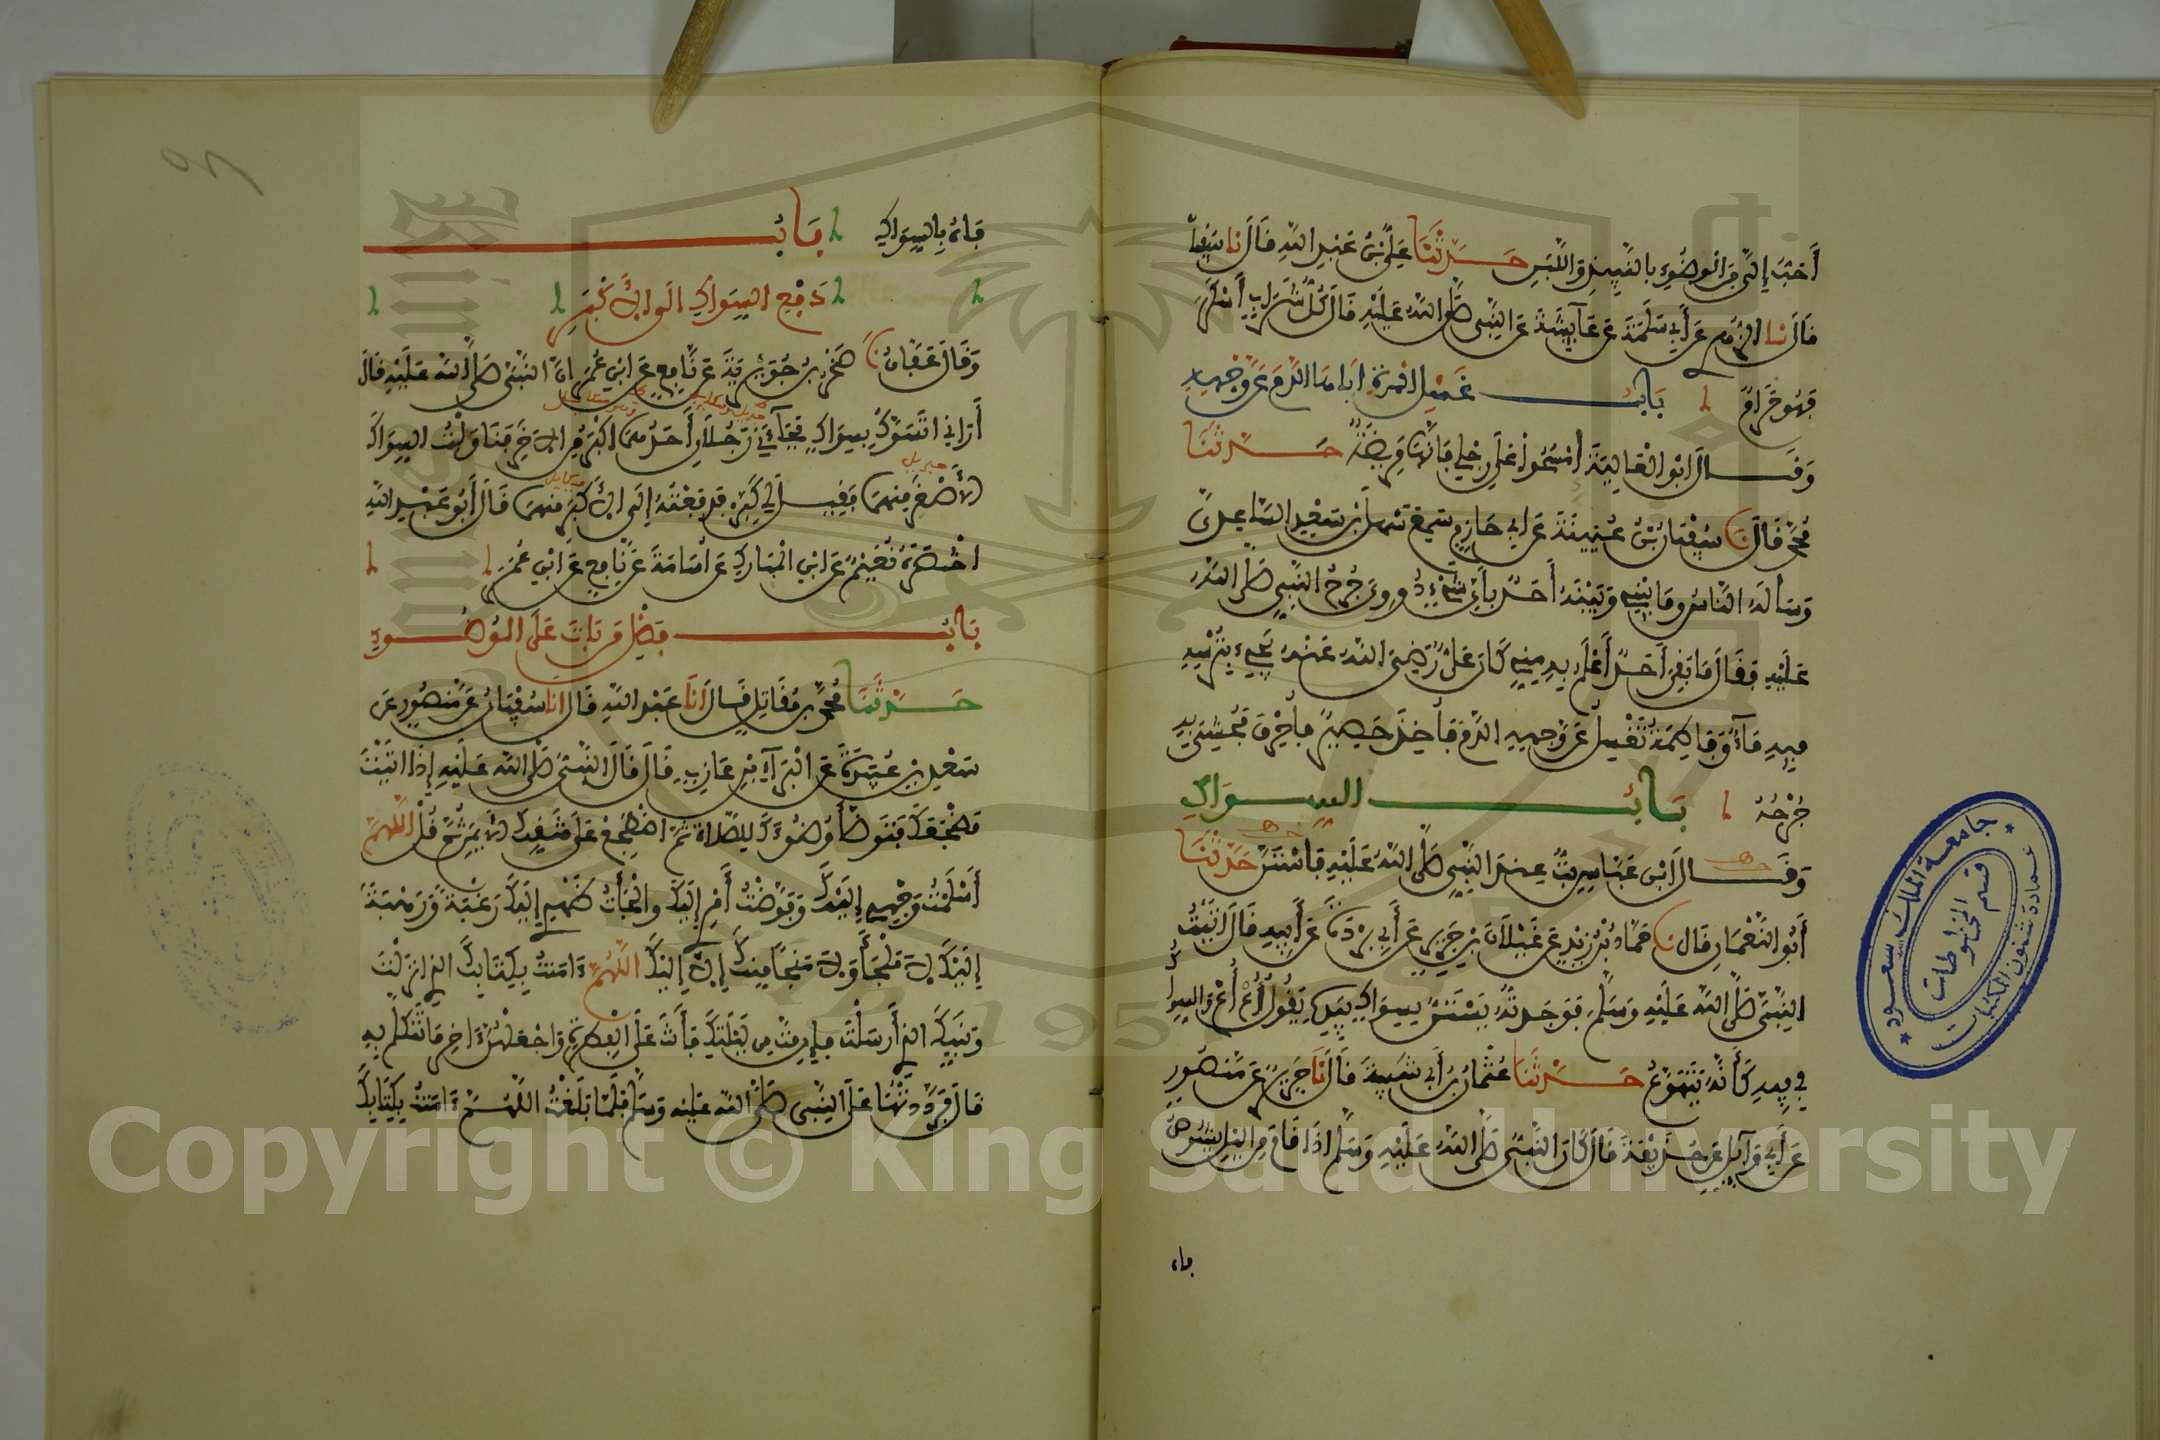 أَحَبُّ إِلَيَّ مِنَ الْوُضُوءِ بِالنَّبِيذِ وَاللَّبَنِ حَدَّثَنَا عَلِيُّ بْنُ عَبْدِ اللَّهِ قَالَ نا سُفْيَانُ
قَالَ نا الزُّهْرِيُّ عَنْ أَبِي سَلَمَةَ عَنْ عَائِشَةَ عَنِ النَّبِيِّ صَلَّى اللَّهُ عَلَيْهِ قَالَ كُلُّ شَرَابٍ أَسْكَرَ
فَهُوَ حَرَامٌ بَابُ غَسْلِ الْمَرْأَةِ أَبَاهَا الدَّمَ عَنْ وَجْهِهِ
وَقَالَ أَبُو الْعَالِيَةِ امْسَحُوا عَلَى رِجْلِي فَإِنَّهَا مَرِيضَةٌ حَدَّثَنَا
مُحَمَّدٌ قَالَ نا سُفْيَانُ بْنُ عُيَيْنَةَ عَنْ أَبِي حَازِمٍ سَمِعَ سَهْلَ بْنَ سَعْدٍ السَّاعِدِيَّ
وَسَأَلَهُ النَّاسُ وَمَا بَيْنِي وَبَيْنَهُ أَحَدٌ بِأَيِّ شَيْءٍ دُووِيَ جُرْحُ النَّبِيِّ صَلَّى اللَّهُ
عَلَيْهِ فَقَالَ مَا بَقِيَ أَحَدٌ أَعْلَمُ بِهِ مِنِّي كَانَ عَلِيٌّ رَضِيَ اللَّهُ عَنْهُ يَجِيءُ بِتُرْسِهِ
فِيهِ مَاءٌ وَفَاطِمَةُ تَغْسِلُ عَنْ وَجْهِهِ الدَّمَ فَأُخِذَ حَصِيرٌ فَأُحْرِقَ فَحُشِيَ بِهِ
جُرْحُهُ بَابُ السِّوَاكِ
وَقَالَ ابْنُ عَبَّاسٍ بِتُّ عِنْدَ النَّبِيِّ صَلَّى اللَّهُ عَلَيْهِ فَاسْتَنَّ حَدَّثَنَا
أَبُو النُّعْمَانِ قَالَ نا حَمَّادُ بْنُ زَيْدٍ عَنْ غَيْلَانَ بْنِ جَرِيرٍ عَنْ أَبِي بُرْدَةَ عَنْ أَبِيهِ قَالَ أَتَيْتُ
النَّبِيَّ صَلَّى اللَّهُ عَلَيْهِ وَسَلَّمَ فَوَجَدْتُهُ يَسْتَنُّ بِسِوَاكٍ بِيَدِهِ يَقُولُ أُعْ أُعْ وَالسِّوَاكُ
فِي فِيهِ كَأَنَّهُ يَتَهَوَّعُ حَدَّثَنَا عُثْمَانُ بْنُ أَبِي شَيْبَةَ قَالَ نا جَرِيرٌ عَنْ مَنْصُورٍ
عَنْ أَبِي وَائِلٍ عَنْ حُذَيْفَةَ قَالَ كَانَ النَّبِيُّ صَلَّى اللَّهُ عَلَيْهِ وَسَلَّمَ إِذَا قَامَ مِنَ اللَّيْلِ يَشُوصُ
فاه
جامعة الملك سعود
عمادة شئون المكتبات
قسم المخطوطات
فَاهُ بِالسِّوَاكِ بَابُ
دَفْعِ السِّوَاكِ إِلَى الْأَكْبَرِ
وَقَالَ عَفَّانُ نا صَخْرُ بْنُ جُوَيْرِيَةَ عَنْ نَافِعٍ عَنِ ابْنِ عُمَرَ أَنَّ النَّبِيَّ صَلَّى اللَّهُ عَلَيْهِ قَالَ
أَرَانِي أَتَسَوَّكُ بِسِوَاكٍ فَجَاءَنِي رَجُلَانِ أَحَدُهُمَا أَكْبَرُ مِنَ الْآخَرِ فَنَاوَلْتُ السِّوَاكَ
الْأَصْغَرَ مِنْهُمَا فَقِيلَ لِي كَبِّرْ فَدَفَعْتُهُ إِلَى الْأَكْبَرِ مِنْهُمَا قَالَ أَبُو عَبْدِ اللَّهِ
جبريل
ميكايل
اخْتَصَرَهُ نُعَيْمٌ عَنِ ابْنِ الْمُبَارَكِ عَنْ أُسَامَةَ عَنْ نَافِعٍ عَنِ ابْنِ عُمَرَ
بَابُ فَضْلِ مَنْ بَاتَ عَلَى الْوُضُوءِ
حَدَّثَنَا مُحَمَّدُ بْنُ مُقَاتِلٍ قَالَ أَنَا عَبْدُ اللَّهِ قَالَ أَنَا سُفْيَانُ عَنْ مَنْصُورٍ عَنْ
سَعْدِ بْنِ عُبَيْدَةَ عَنِ الْبَرَاءِ بْنِ عَازِبٍ قَالَ قَالَ النَّبِيُّ صَلَّى اللَّهُ عَلَيْهِ إِذَا أَتَيْتَ
مَضْجَعَكَ فَتَوَضَّأْ وُضُوءَكَ لِلصَّلَاةِ ثُمَّ اضْطَجِعْ عَلَى شِقِّكَ الْأَيْمَنِ ثُمَّ قُلْ اللَّهُمَّ
أَسْلَمْتُ وَجْهِي إِلَيْكَ وَفَوَّضْتُ أَمْرِي إِلَيْكَ وَأَلْجَأْتُ ظَهْرِي إِلَيْكَ رَغْبَةً وَرَهْبَةً
إِلَيْكَ لَا مَلْجَأَ وَلَا مَنْجَا مِنْكَ إِلَّا إِلَيْكَ اللَّهُمَّ ءَامَنْتُ بِكِتَابِكَ الَّذِي أَنْزَلْتَ
وَنَبِيِّكَ الَّذِي أَرْسَلْتَ فَإِنْ مِتَّ مِنْ لَيْلَتِكَ فَأَنْتَ عَلَى الْفِطْرَةِ وَاجْعَلْهُنَّ ءَاخِرَ مَا تَتَكَلَّمُ بِهِ
قَالَ فَرَدَّدْتُهَا عَلَى النَّبِيِّ صَلَّى اللَّهُ عَلَيْهِ وَسَلَّمَ فَلَمَّا بَلَغْتُ اللَّهُمَّ ءَامَنْتُ بِكِتَابِكَ
Copyright © King Saud University